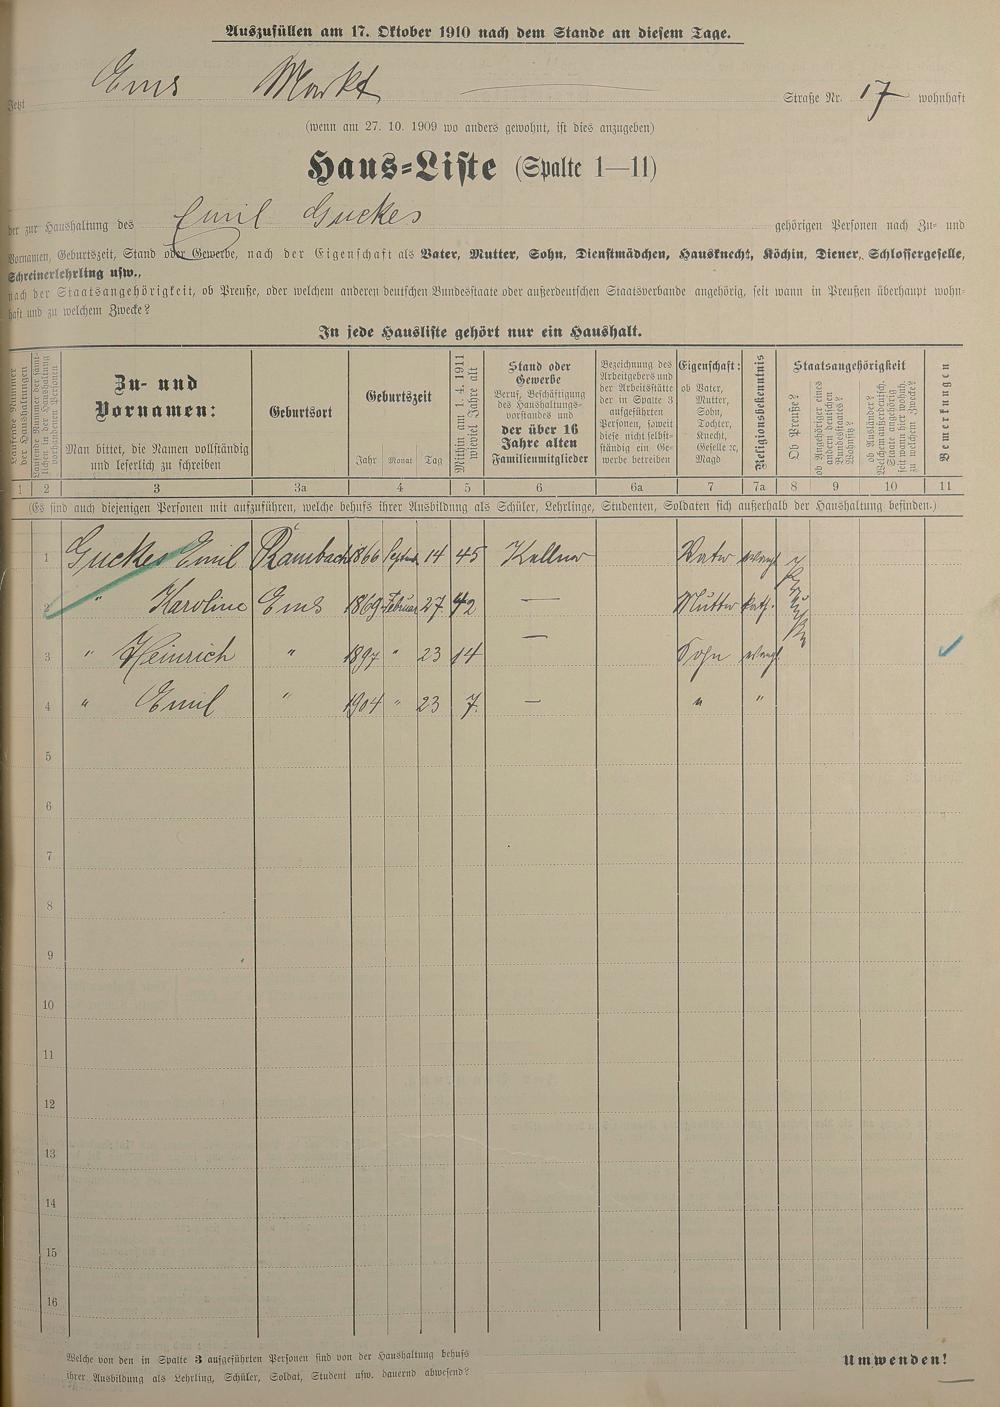 Auszufüllen am 17. Oktober 1910 nach dem Stande an diesem Tage.
Jetzt Ems Markt Straße Nr. 17 wohnhaft
(wenn am 27. 10. 1909 wo anders gewohnt, ist dies anzugeben)
Haus-Liste (Spalte 1—11)
der zur Haushaltung des Emil Guckes gehörigen Personen nach Zu- und
Vornamen, Geburtszeit, Stand oder Gewerbe, nach der Eigenschaft als Vater, Mutter, Sohn, Dienstmädchen, Hausknecht, Köchin, Diener, Schlossergeselle,
Schreinerlehrling usw.,
nach der Staatsangehörigkeit, ob Preuße, oder welchem anderen deutschen Bundesstaate oder außerdeutschen Staatsverbande angehörig, seit wann in Preußen überhaupt wohn-
haft und zu welchem Zwecke?
In jede Hausliste gehört nur ein Haushalt.
Laufende Nummer
der Haushaltungen
Laufende Nummer der sämt-
lichen in der Haushaltung
vorhandenen Personen
Zu- und
Vornamen:
Man bittet, die Namen vollständig
und leserlich zu schreiben
Geburtsort
Geburtszeit
Jahr Monat Tag
Mithin am 1. 4. 1911
wieviel Jahre alt
Stand oder
Gewerbe
Beruf, Beschäftigung
des Haushaltungs-
vorstandes und
der über 16
Jahre alten
Familienmitglieder
Bezeichnung des
Arbeitgebers und
der Arbeitsstätte
der in Spalte 3
aufgeführten
Personen, soweit
diese nicht selbst-
ständig ein Ge-
werbe betreiben
Eigenschaft:
ob Vater,
Mutter,
Sohn,
Tochter,
Knecht,
Geselle ꝛc,
Magd
Religionsbekenntnis
Staatsangehörigkeit
Ob Preuße?
ob Angehöriger eines
andern deutschen
Bundesstaates?
Wohnsitz?
ob Ausländer?
Welchem außerdeutsch.
Staate angehörig
seit wann hier wohnh.
zu welchem Zwecke?
Bemerkungen
1 2 3 3a 4 5 6 6a 7 7a 8 9 10 11
(Es sind auch diejenigen Personen mit aufzuführen, welche behufs ihrer Ausbildung als Schüler, Lehrlinge, Studenten, Soldaten sich außerhalb der Haushaltung befinden.)
1 Guckes Emil Rambach 1866 Septmb. 14 45 Kellner Vater evangl.
2 " Karoline Ems 1869 Februar 27. 42 — Mutter kath.
3 " Heinrich " 1897 " 23 14 — Sohn evangl.
4 " Emil " 1904 " 23 7. — " "
5
6
7
8
9
10
11
12
13
14
15
16
Welche von den in Spalte 3 aufgeführten Personen sind von der Haushaltung behufs
ihrer Ausbildung als Lehrling, Schüler, Soldat, Student usw. dauernd abwesend?
Umwenden!